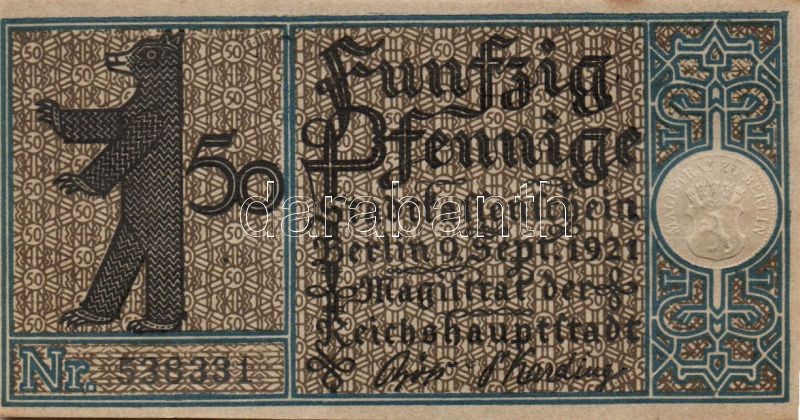 50
Fünfzig
Pfennige
Berlin 9. Sept. 1921
Magistrat der
Reichshauptstadt
Nr. 538331
MAGISTRAT ZU BERLIN
darabanth